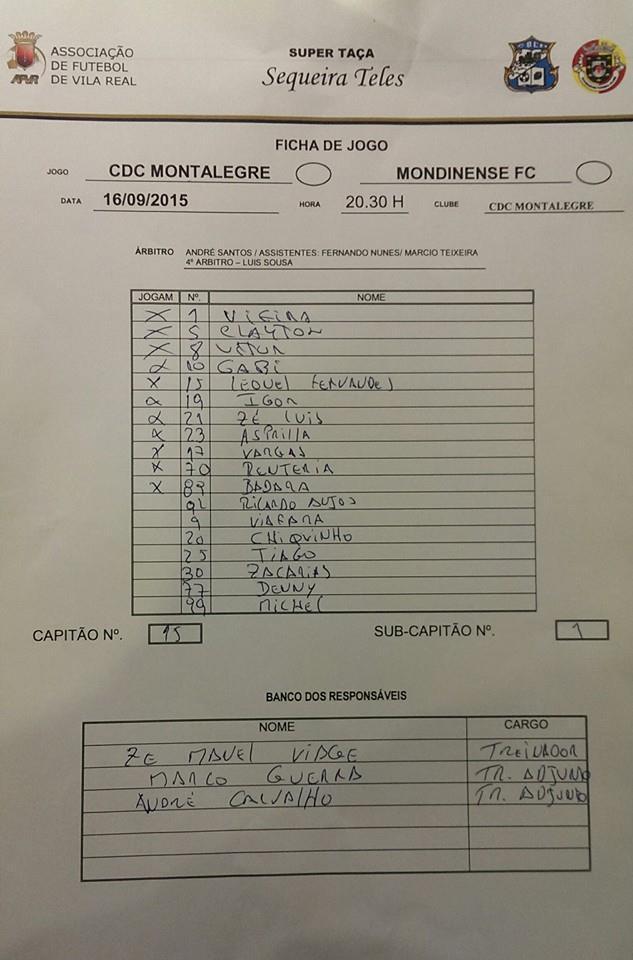 ASSOCIAÇÃO
DE FUTEBOL
DE VILA REAL
AFVR
SUPER TAÇA
Sequeira Teles
FICHA DE JOGO
JOGO CDC MONTALEGRE MONDINENSE FC
DATA 16/09/2015 HORA 20.30 H CLUBE CDC MONTALEGRE
ÁRBITRO ANDRÉ SANTOS / ASSISTENTES: FERNANDO NUNES/ MARCIO TEIXEIRA
4º ARBITRO – LUIS SOUSA
JOGAM Nº. NOME
X 1 VIEIRA
X 5 CLAYTON
X 8 VITOR
X 10 GABI
X 15 LEOUEL FERNANDES
X 19 IGOR
X 21 ZÉ LUIS
X 23 ASPRILLA
X 17 VARGAS
X 70 RENTERIA
X 89 BADARA
92 RICARDO
9 VIAFARA
20 CHIQUINHO
25 TIAGO
30 ZACARIAS
77 DENNY
99 MICHEL
CAPITÃO Nº. 15 SUB-CAPITÃO Nº. 1
BANCO DOS RESPONSÁVEIS
NOME CARGO
ZE MANUEL VIAGE TREINADOR
MARCO GUERRA TR. ADJUNTO
ANDRÉ CARVALHO TR. ADJUNTO